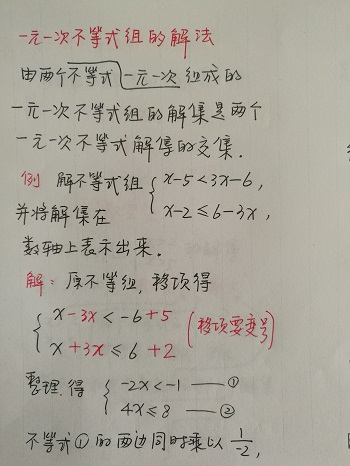 一元一次不等式组的解法
由两个不等式一元一次组成的
一元一次不等式组的解集是两个
一元一次不等式解集的交集.
例 解不等式组 { x-5<3x-6,
并将解集在 x-2≤6-3x,
数轴上表示出来.
解: 原不等组, 移项得
{ x-3x<-6+5
x+3x≤6+2 (移项要变号)
整理,得 { -2x<-1 ——①
4x≤8 ——②
不等式①的两边同时乘以 1/-2,